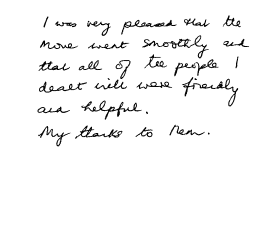 I was very pleased that the
move went smoothly and
that all of the people I
dealt with were friendly
and helpful.
My thanks to them.